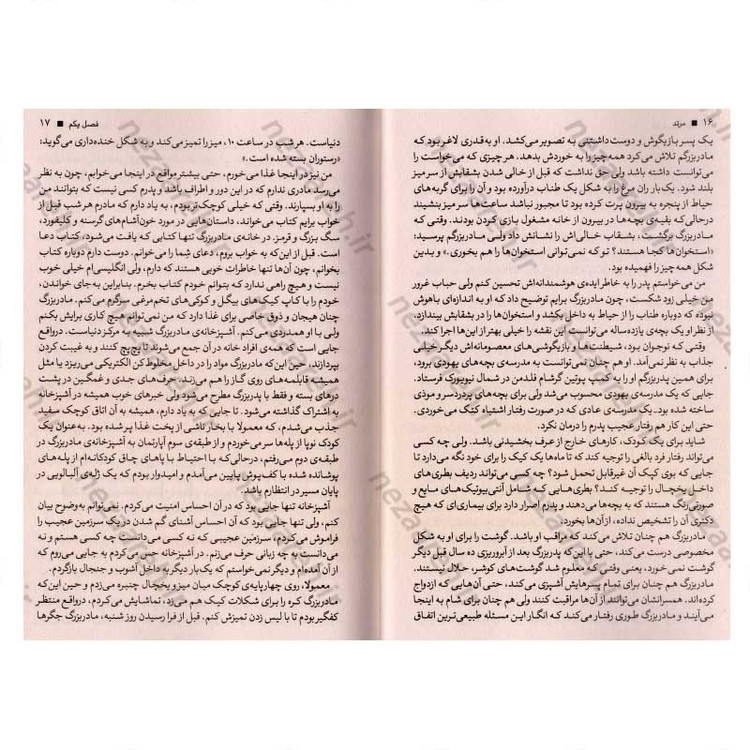 ۱۶ ■ مرتد
یک پسر بازیگوش و دوست داشتنی به تصویر می‌کشد. او به‌قدری لاغر بود که
مادربزرگم تلاش می‌کرد همه چیز را به خوردش بدهد. هر چیزی که می‌خواست را
می‌توانست داشته باشد ولی حق نداشت که قبل از خالی شدن بشقابش از سر میز
بلند شود. یک‌بار ران مرغ را به شکل یک طناب درآورده بود و آن را برای گربه‌های
حیاط از پنجره به بیرون پرت کرده بود تا مجبور نباشد ساعت‌ها سر میز بنشیند
درحالی‌که بقیه‌ی بچه‌ها در بیرون از خانه مشغول بازی کردن بودند. وقتی که
مادربزرگ برگشت، بشقاب خالی‌اش را نشانش داد ولی مادربزرگم پرسید:
«استخوان‌ها کجا هستند؟ تو که نمی‌توانی استخوان‌ها را هم بخوری.» و بدین
شکل همه چیز را فهمیده بود.
من می‌خواستم پدر را به خاطر ایده‌ی هوشمندانه‌اش تحسین کنم ولی حباب غرور
من خیلی زود شکست، چون مادربزرگ برایم توضیح داد که او به اندازه‌ای باهوش
نبوده که دوباره طناب را از حیاط به داخل بکشد و استخوان‌ها را در بشقابش بیندازد.
از نظر او یک بچه‌ی یازده‌ساله می‌توانست این نقشه را خیلی بهتر از این‌ها اجرا کند.
وقتی که نوجوان بود، شیطنت‌ها و بازیگوشی‌های معصومانه‌اش دیگر خیلی
جذاب به نظر نمی‌آمد. او هم چنان نمی‌توانست به مدرسه‌ی بچه‌های یهودی برود،
برای همین پدربزرگم او را به کمپ پوتین گرشام فلدمن در شمال نیویورک فرستاد.
جایی که یک مدرسه‌ی یهودی محسوب می‌شد ولی برای بچه‌های پردردسر و موذی
ساخته شده بود. یک مدرسه‌ی عادی که در صورت رفتار اشتباه کتک می‌خوردی.
حتی این کار هم رفتار عجیب پدرم را درمان نکرد.
شاید برای یک کودک، کارهای خارج از عرف بخشیدنی باشد. ولی چه کسی
می‌تواند رفتار فرد بالغی را توجیه کند که تا ماه‌ها یک کیک را برای خود نگه می‌دارد تا
جایی که بوی کپک آن غیرقابل تحمل شود؟ چه کسی می‌تواند ردیف بطری‌های
داخل یخچال را توجیه کند؟ بطری‌هایی که شامل آنتی‌بیوتیک‌های مایع و
صورتی‌رنگ هستند که به بچه‌ها می‌دهند و پدرم اصرار دارد برای بیماری‌ای که هیچ
دکتری آن را تشخیص نداده، از آن‌ها بخورد.
مادربزرگم هم چنان تلاش می‌کند که مراقب او باشد. گوشت را برای او به شکل
مخصوصی درست می‌کند، حتی با این‌که پدربزرگ بعد از آبروریزی ده سال قبل دیگر
گوشت نمی‌خورد، یعنی وقتی که معلوم شد گوشت‌های کوشر، حلال نیستند.
مادربزرگ هم چنان برای تمام پسرهایش آشپزی می‌کند، حتی آن‌هایی که ازدواج
کرده‌اند. همسرانشان می‌توانند از آن‌ها مراقبت کنند ولی هم چنان برای شام به اینجا
می‌آیند و مادربزرگ طوری رفتار می‌کند که انگار این مسئله طبیعی‌ترین اتفاق
فصل یکم ■ ۱۷
دنیاست. هر شب در ساعت ۱۰، میز را تمیز می‌کند و به شکل خنده‌داری می‌گوید:
«رستوران بسته شده است.»
من نیز در اینجا غذا می‌خورم، حتی بیشتر مواقع در اینجا می‌خوابم، چون به نظر
می‌رسد مادری ندارم که در این دور و اطراف باشد و پدرم کسی نیست که بتوانند من
را به او بسپارند. وقتی که خیلی کوچک‌تر بودم، به یاد دارم که مادرم هر شب قبل از
خواب برایم کتاب می‌خواند، داستان‌هایی در مورد خون‌آشام‌های گرسنه و کلیفورد،
سگ بزرگ و قرمز. در خانه‌ی مادربزرگ تنها کتابی که یافت می‌شود، کتاب دعا
است. قبل از این‌که به خواب بروم، دعای شِما را می‌خوانم. دوست دارم دوباره کتاب
بخوانم، چون آن‌ها تنها خاطرات خوبی هستند که دارم، ولی انگلیسی‌ام خیلی خوب
نیست و هیچ راهی ندارد که بتوانم خودم کتاب بخرم. بنابراین به جای خواندن،
خودم را با کاپ کیک‌های بیگل و کوکی‌های تخم‌مرغی سرگرم می‌کنم. مادربزرگ
چنان هیجان و ذوق خاصی برای غذا دارد که من نمی‌توانم هیچ کاری برایش بکنم
ولی با او همدردی می‌کنم. آشپزخانه‌ی مادربزرگ شبیه به مرکز دنیاست. درواقع
جایی است که همه‌ی افراد خانه در آن جمع می‌شوند تا پچ‌پچ کنند و به غیبت کردن
بپردازند، حین این‌که مادربزرگ مواد را در داخل مخلوط‌کن الکتریکی می‌ریزد یا مثل
همیشه قابلمه‌های روی گاز را هم می‌زند. حرف‌های جدی و غمگین در پشت
درهای بسته و فقط با پدربزرگ مطرح می‌شود ولی خبرهای خوب همیشه در آشپزخانه
به اشتراک گذاشته می‌شود. تا جایی که به یاد دارم، همیشه به آن اتاق کوچک سفید
جذب می‌شدم، که معمولا با بخار ناشی از پخت غذا پر شده بود. به‌عنوان یک
کودک نوپا از پله‌ها سر می‌خوردم و از طبقه‌ی سوم آپارتمان به آشپزخانه‌ی مادربزرگ در
طبقه‌ی دوم می‌رفتم، درحالی‌که با احتیاط با پاهای چاق کودکانه‌ام از پله‌های
پوشیده شده با کف‌پوش پایین می‌آمدم و امیدوار بودم که یک ژله‌ی آلبالویی در
پایان مسیر در انتظارم باشد.
آشپزخانه تنها جایی بود که در آن احساس امنیت می‌کردم. نمی‌توانم به‌وضوح بیان
کنم، ولی تنها جایی بود که آن احساس آشنای گم شدن در یک سرزمین عجیب را
فراموش می‌کردم، سرزمین عجیبی که نه کسی می‌دانست چه کسی هستم و نه
می‌دانست به چه زبانی حرف می‌زنم. در آشپزخانه حس می‌کردم به جایی می‌روم که
از آن آمده‌ام و دیگر نمی‌خواستم که یک‌بار دیگر به داخل آشوب و جنجال بازگردم.
معمولا، روی چهارپایه‌ی کوچک میان میز و یخچال چنبره می‌زدم و حین این‌که
مادربزرگ کره را برای شکلات کیک هم می‌زد، تماشایش می‌کردم، درواقع منتظر
کفگیر بودم تا با لیس زدن تمیزش کنم. قبل از فرا رسیدن روز شنبه، مادربزرگ جگرها
nezaah.ir